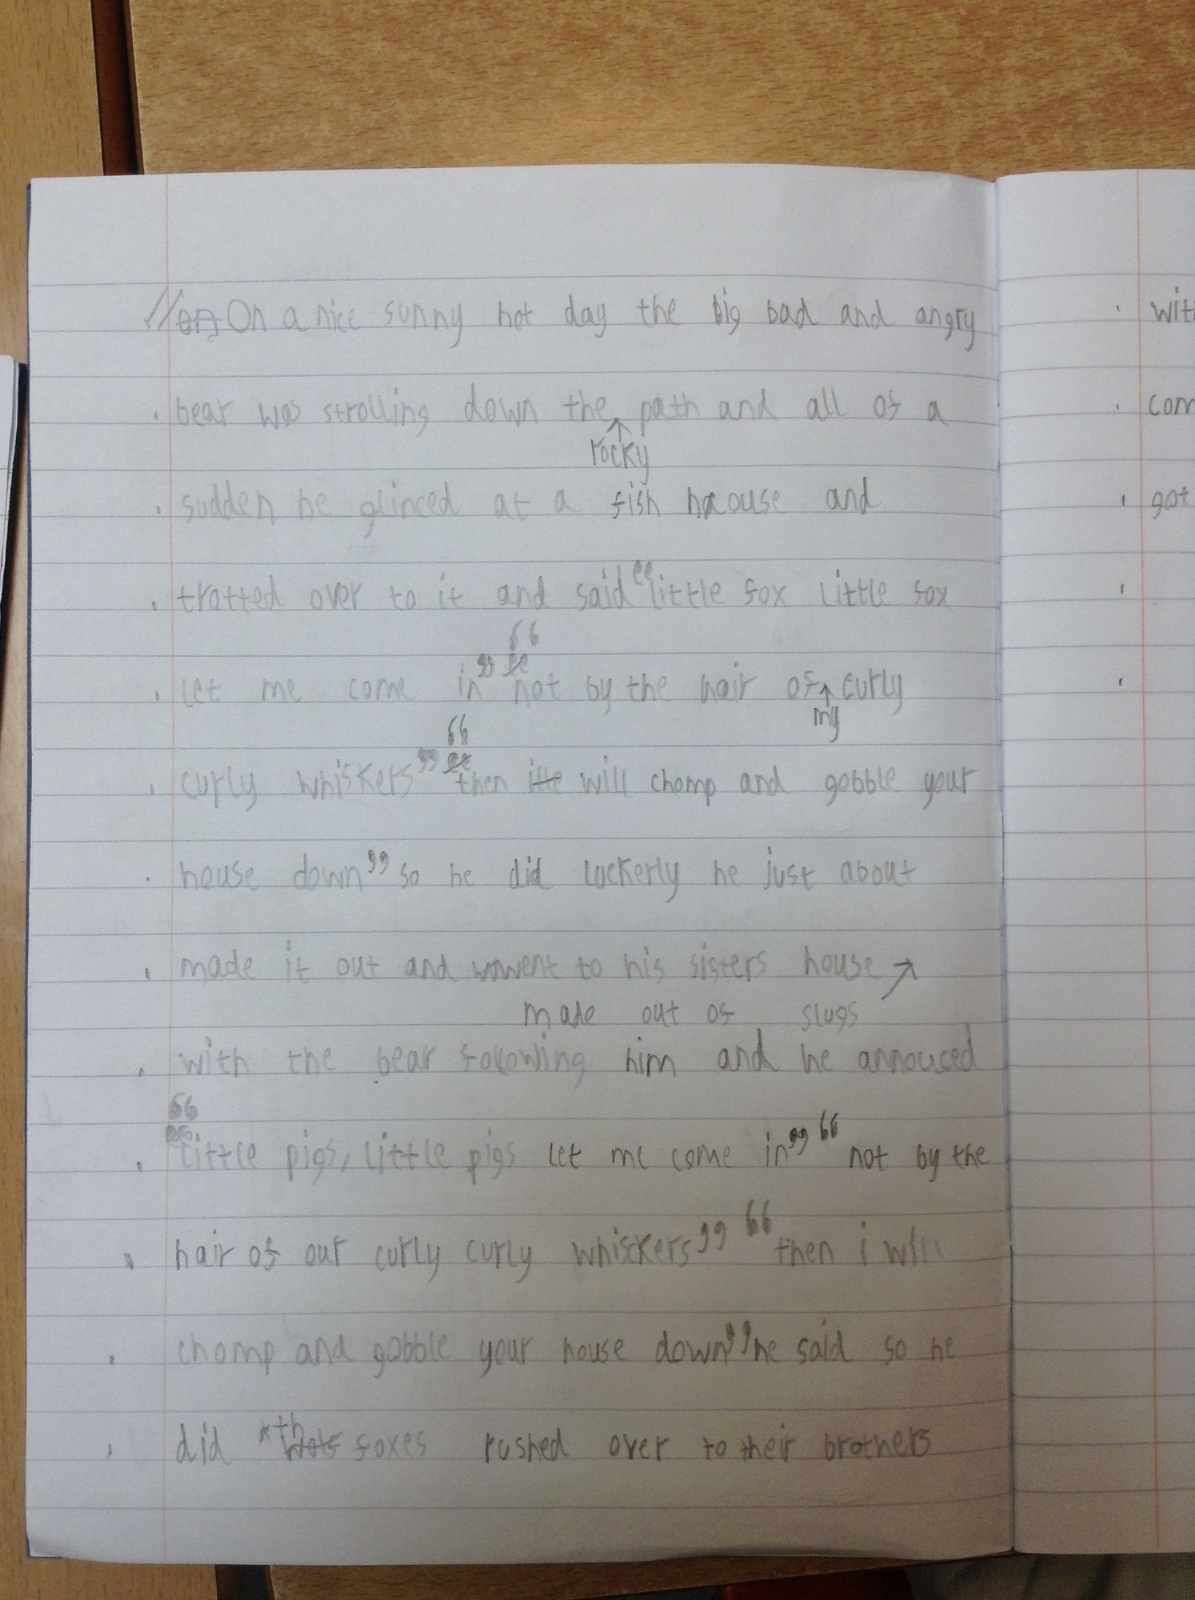 // on On a nice sunny hot day the big bad and angry
bear was strolling down the path and all of a
rocky
sudden he glinced at a fish house and
trotted over to it and said "little fox little fox
let me come in" "not by the hair of curly
my
curly whiskers" "then will chomp and gobble your
house down" so he did luckerly he just about
made it out and went to his sisters house
made out of slugs
with the bear following him and he annouced
"little pigs, little pigs let me come in" "not by the
hair of our curly curly whisckers" "then i will
chomp and gobble your house down" he said so he
did foxes rushed over to their brothers
with
got